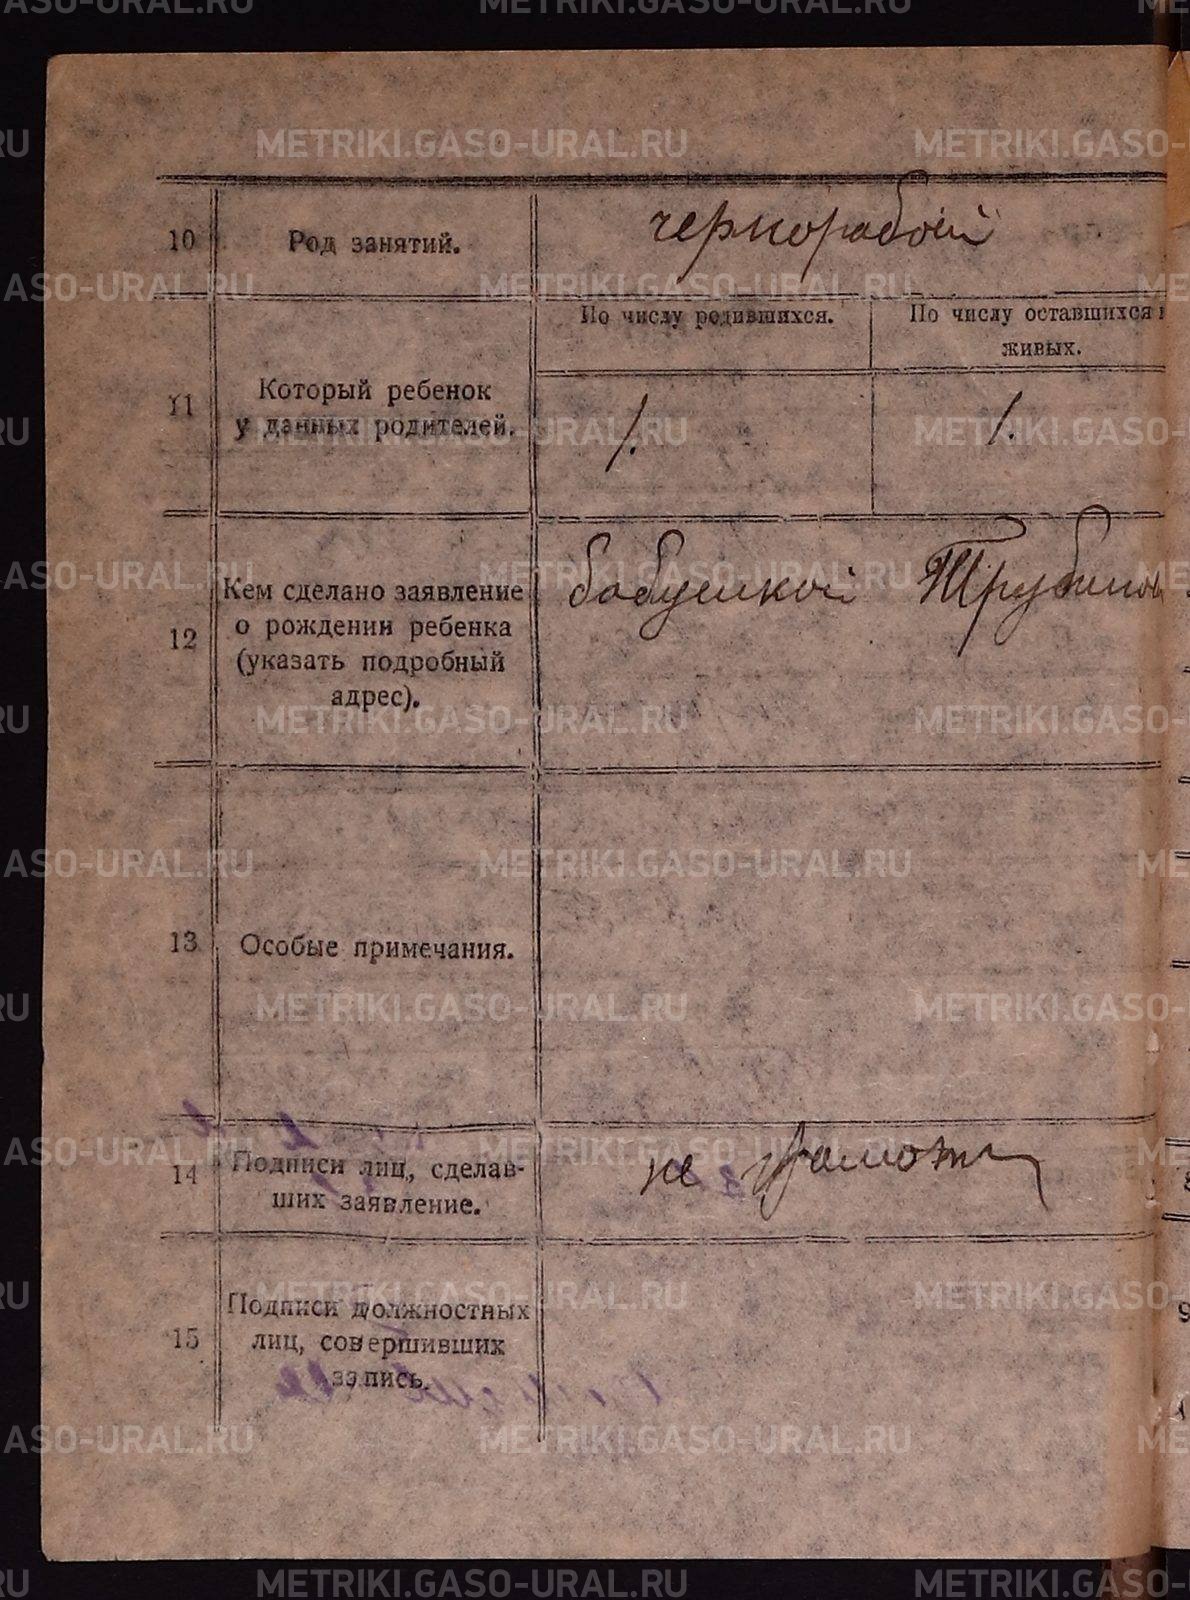 10 Род занятий. чернорабой
По числу родившихся. По числу оставшихся
живых.
11 Который ребенок
у данных родителей. 1. 1.
12 Кем сделано заявление
о рождении ребенка
(указать подробный
адрес).
бабушкой Трубино
13 Особые примечания.
14 Подписи лиц, сделав-
ших заявление.
не грамотн
15 Подписи должностных
лиц, совершивших
запись.
METRIKI.GASO-URAL.RU